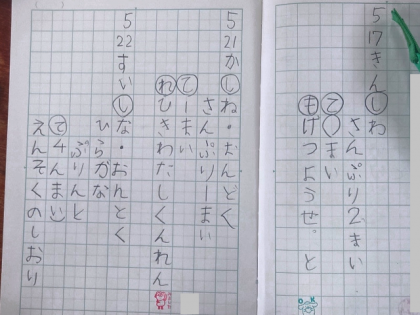 5 17 きん し わ
さんぷり2まい
て ○ い
も げつようせ。と
5 21 か し ね・おんどく
さんぷりーまい
て ーまい
れ ひきわたしくんれん
5 22 すい し な・おんとく
ひらがな
ぷりんと
て 4まい
えんそくのしおり